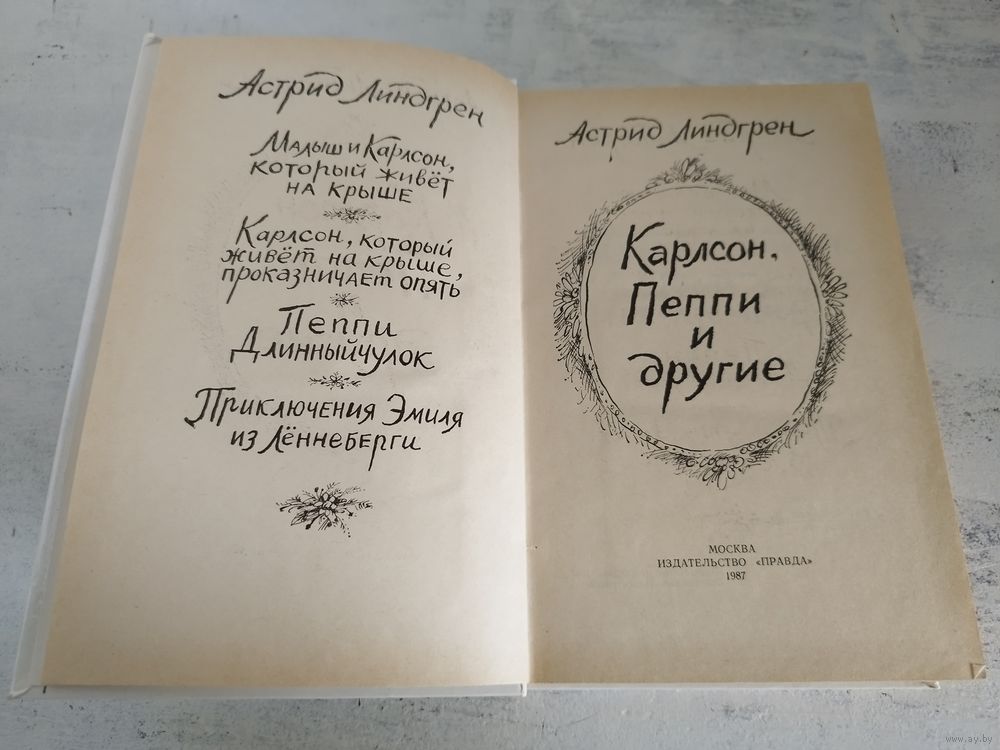 Астрид Линдгрен
Малыш и Карлсон,
который живёт
на крыше
Карлсон, который
живёт на крыше,
проказничает опять
Пеппи
Длинныйчулок
Приключения Эмиля
из Лённеберги
Астрид Линдгрен
Карлсон,
Пеппи
и
другие
МОСКВА
ИЗДАТЕЛЬСТВО «ПРАВДА»
1987
www.ay.by